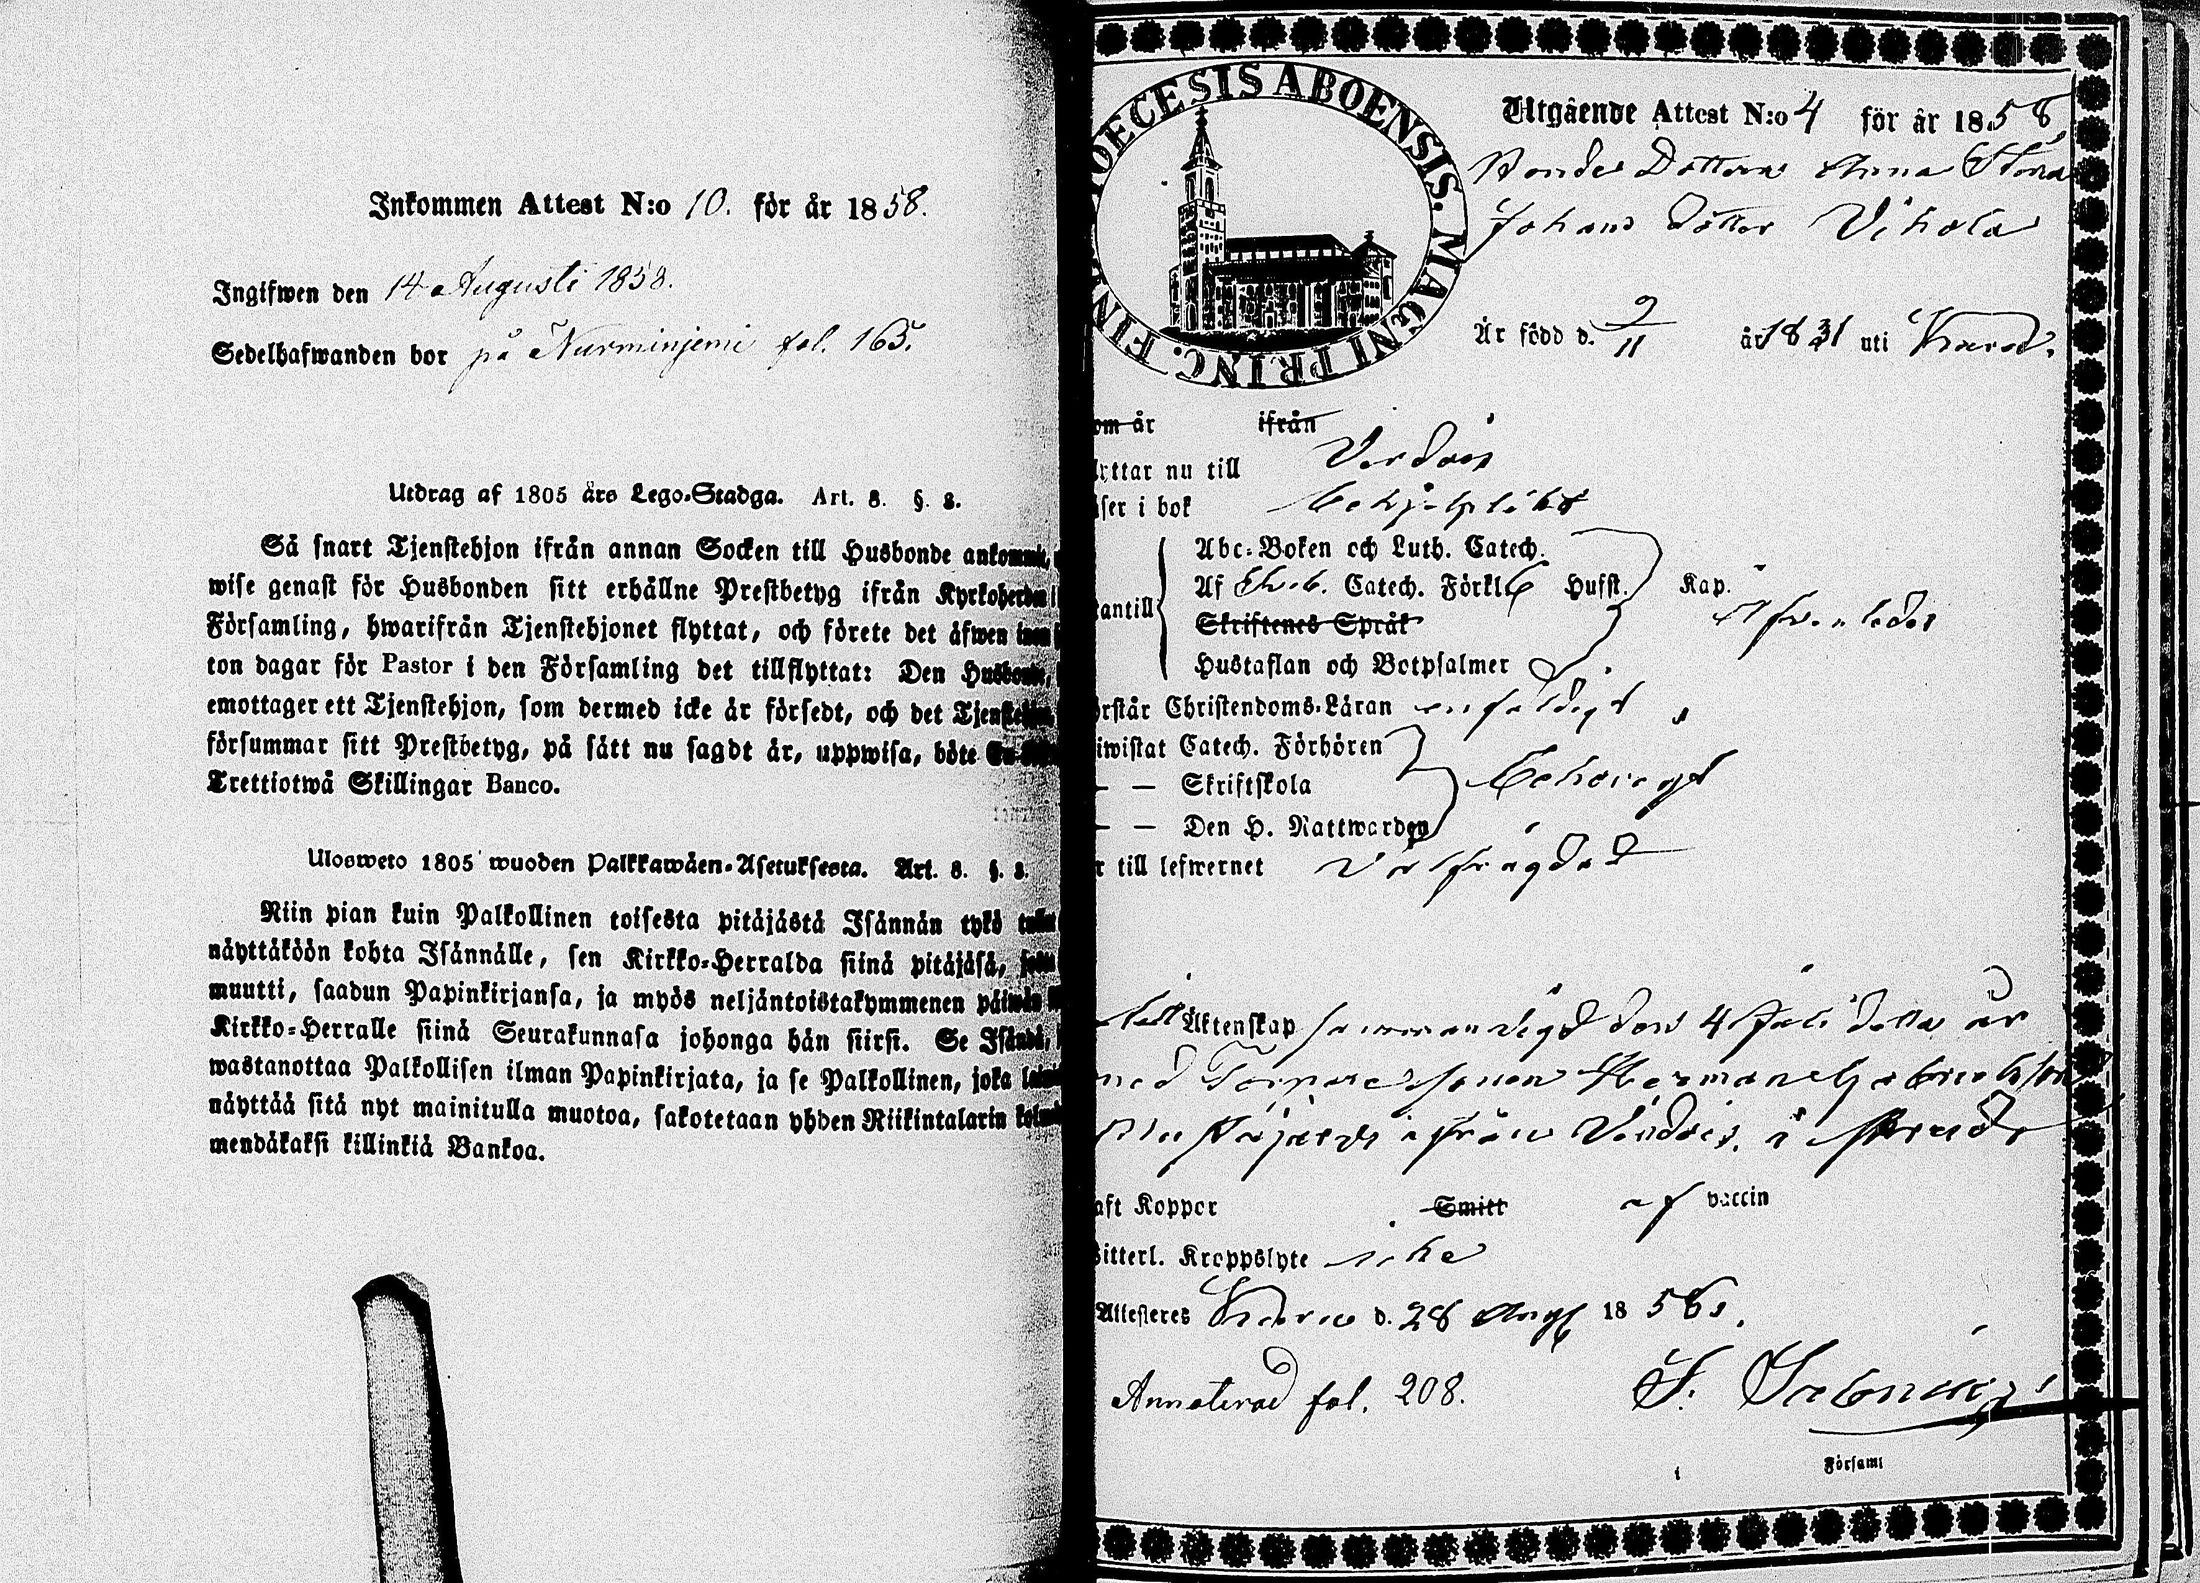 Inkommen Attest N:o 10. för år 1858.
Ingifwen den 14 Augusti 1858.
Sedelhafwanden bor på Nurminjemi fol. 165.
Utdrag af 1805 års Lego-Stadga. Art. 8. §. 8.
Så snart Tjenstehjon ifrån annan Socken till Husbonde ankommit,
wise genast för Husbonden sitt erhållne Prestbetyg ifrån Kyrkoherden i
Församling, hwarifrån Tjenstehjonet flyttat, och förete det äfwen inom
ton dagar för Pastor i den Församling det tillflyttat: Den Husbonde,
emottager ett Tjenstehjon, som dermed icke är försedt, och det Tjenstehjon,
försummar sitt Prestbetyg, på sätt nu sagdt är, uppwisa, böte En
Trettiotwå Skillingar Banco.
Ulosweto 1805 wuoden Palkkawäen-Asetuksesta. Art. 8. §. 8.
Niin pian kuin Palkollinen toisesta pitäjästä Isännän tykö
näyttäköön kohta Isännälle, sen Kirkko-Herralda siinä pitäjäsä,
muutti, saadun Papinkirjansa, ja myös neljäntoistakymmenen päiwän
Kirkko-Herralle siinä Seurakunnasa johonga hän siirsi. Se Isändä,
wastanottaa Palkollisen ilman Papinkirjata, ja se Palkollinen, joka
näyttää sitä nyt mainitulla muotoa, sakotetaan yhden Riikintalarin
mendäkaksi killinkiä Bankoa.
DIOECESIS ABOENSIS. MAGNI PRINC. FIN
Utgående Attest N:o 4 för år 1858,
Bonde Dottren Anna Stina
Johans dotter Vihola
Är född d. 9/11 år 1831 uti
om år ifrån
yttar nu till Vierdois
äser i bok behjelpligt
Abc-Boken och Luth. Catech.
Af Catech. Förkl. Hufst. Kap.
antill
Skriftenes Språk
Hustaflan och Botpsalmer
rstår Christendoms-Läran enfaldigt
iwistat Catech. Förhören
— — Skriftskola behörigt
— — Den H. Nattwarden
r till lefwernet Välfrägdad
till Äktenskap sammanvigd den 4 Juli detta år
med Torparesonen Herman Gabrielsson
ifrån Virdois,
aft Koppor Smitt af vaccin
itterl. Kroppslyte icke
Attesteres d. 28 1858.
Annoterad fol. 208.
Församl